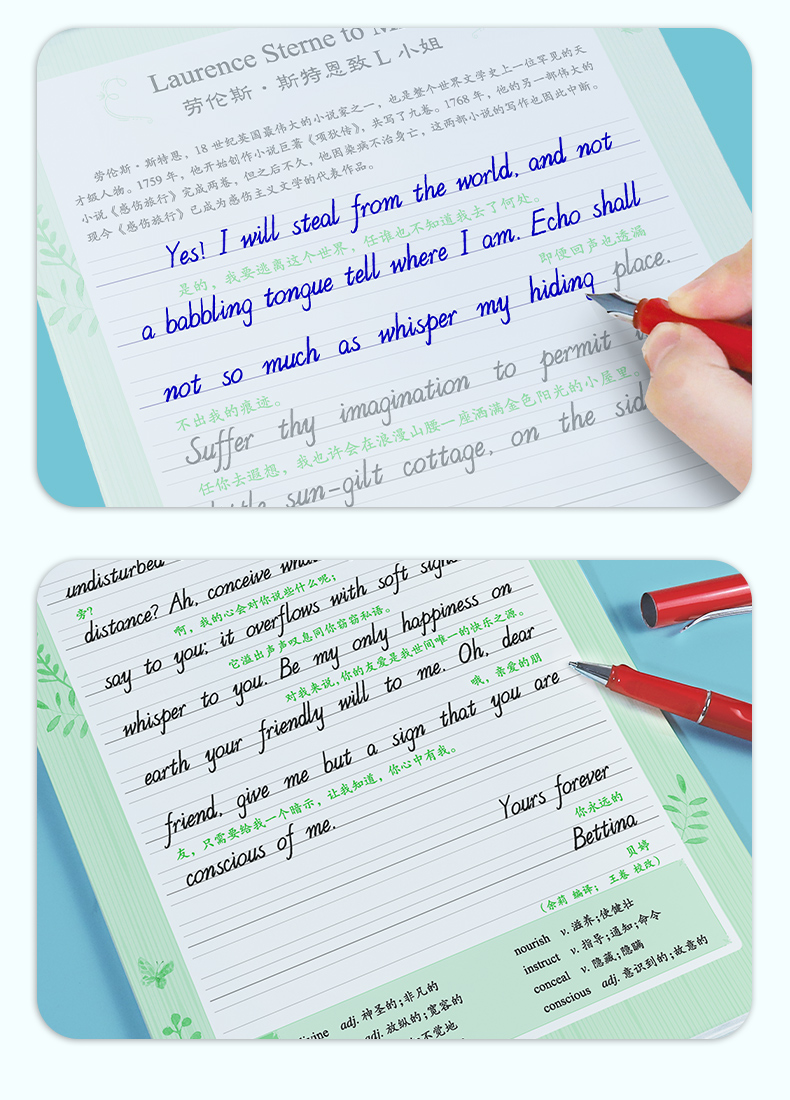 Laurence Sterne to M
劳伦斯·斯特恩致 L 小姐
劳伦斯·斯特恩，18 世纪英国最伟大的小说家之一，也是整个世界文学史上一位罕见的天
才级人物。1759 年，他开始创作小说巨著《项狄传》，共写了九卷。1768 年，他的另一部伟大的
小说《感伤旅行》完成两卷，但之后不久，他因染病不治身亡，这两部小说的写作也因此中断。
现今《感伤旅行》已成为感伤主义文学的代表作品。
Yes! I will steal from the world, and not
是的，我要逃离这个世界，任谁也不知道我去了何处。
a babbling tongue tell where I am. Echo shall
即便回声也透漏
not so much as whisper my hiding place.
不出我的痕迹。
Suffer thy imagination to permit
任你去遐想，我也许会在浪漫山腰一座洒满金色阳光的小屋里。
sun-gilt cottage, on the sid
undisturbed
旁？
distance? Ah, conceive what
啊，我的心会对你说些什么呢；
say to you; it overflows with soft sighs
它溢出声声叹息向你窃窃私语。
whisper to you. Be my only happiness on
对我来说，你的友爱是我世间唯一的快乐之源。
earth your friendly will to me. Oh, dear
哦，亲爱的朋
friend, give me but a sign that you are
友，只需要给我一个暗示，让我知道，你心中有我。
conscious of me.
Yours forever
你永远的
Bettina
贝婷
（余莉 编译；王春 校改）
nourish v. 滋养；使健壮
instruct v. 指导；通知；命令
conceal v. 隐藏；隐瞒
conscious adj. 意识到的；故意的
ivine adj. 神圣的；非凡的
adj. 放纵的；宽容的
不觉地